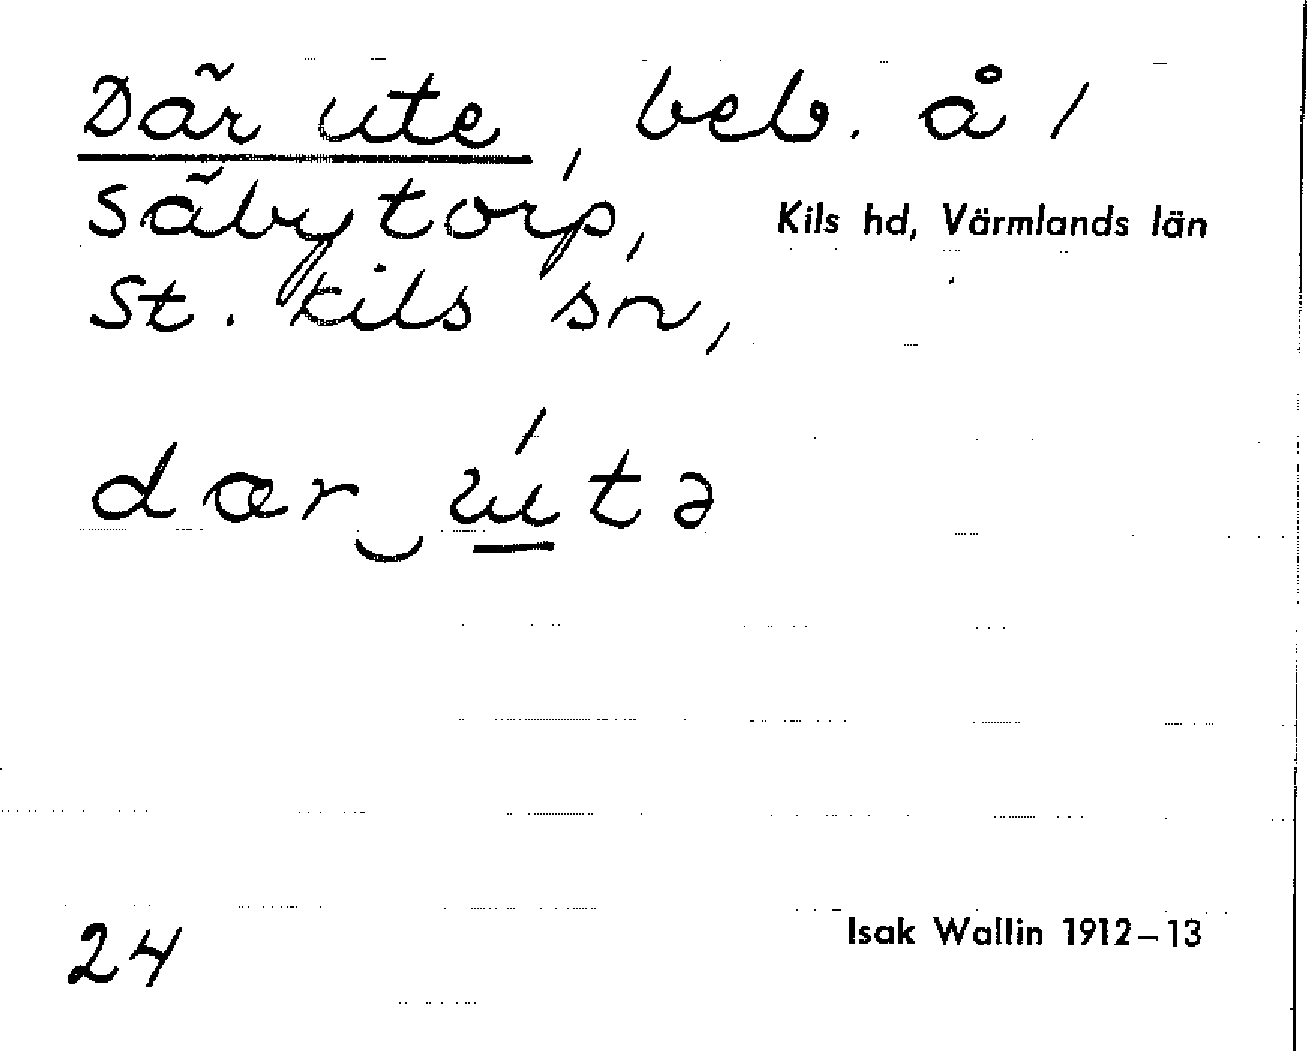 Där ute, beb. å 1
Säbytorp,
Kils hd, Värmlands län
St. Kils sn,
dær‿ú̱tə
24
Isak Wallin 1912–13